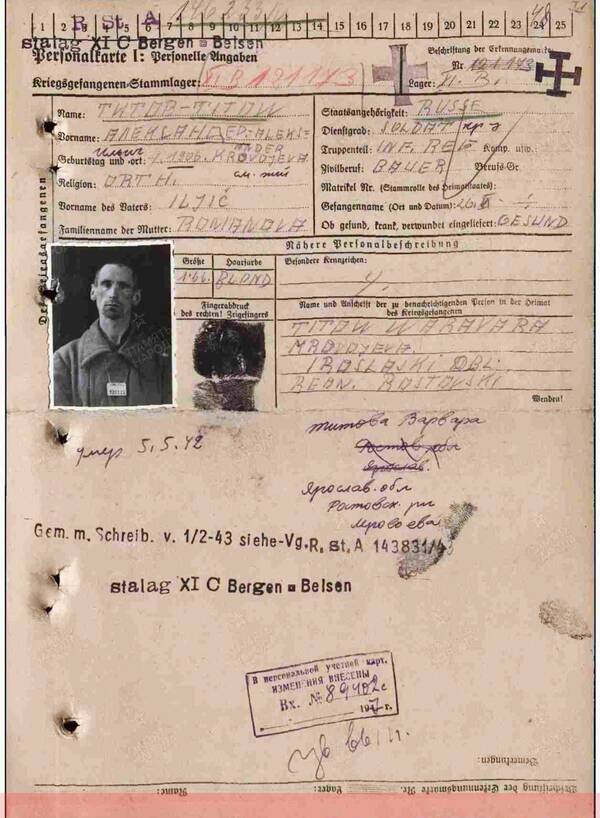 1 2 3 4 5 6 7 8 9 10 11 12 13 14 15 16 17 18 19 20 21 22 23 24 25
R St. A
stalag XI C Bergen - Belsen
Personalkarte I: Personelle Angaben
Beschriftung der Erkennungsmarke
Nr. 121173
Kriegsgefangenen-Stammlager: XI B 121173
Lager: XI. B.
Des Kriegsgefangenen
Name: ТИТОВ-TITOW
Vorname: АЛЕКСАНДЕР-ALEKS=
ANDER
Ильич
Geburtstag und -ort:
Religion: ORTH.
Vorname des Vaters: ILJIČ
Familienname der Mutter: ROMANOVA
Staatsangehörigkeit: RUSSE
Dienstgrad: SOLDAT
Truppenteil: INF. REG Komp. usw.
Zivilberuf: BAUER Berufs-Gr.
Matrikel Nr. (Stammrolle des Heimatstaates):
Gefangennahme (Ort und Datum):
Ob gesund, krank, verwundet eingeliefert: GESUND
Nähere Personalbeschreibung
Größe Haarfarbe
166. BLOND
Besondere Kennzeichen:
Fingerabdruck
des rechten! Zeigefingers
Name und Anschrift der zu benachrichtigenden Person in der Heimat
des Kriegsgefangenen
TITOW WARAVARA
MROVOJEVA.
IROSLAJSKI OBL.
REON. ROSTOVSKI
Wenden!
умер 5.5.42
Титова Варвара
Ростов. обл
Ярослав.
Ярослав. обл
Ростовск. рн
Мровоева
Gem. m. Schreib. v. 1/2-43 siehe-Vg. R. St. A 143831/43
stalag XI C Bergen - Belsen
В персональной учетной карт.
ИЗМЕНЕНИЯ ВНЕСЕНЫ
Вх. № 89402с
197 г.
Bemerkungen:
Beschriftung der Erkennungsmarke Nr.
Lager:
Name: